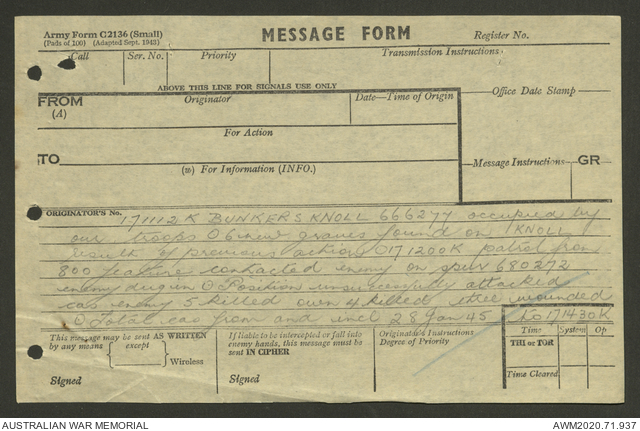 Army Form C2136 (Small)
(Pads of 100) (Adapted Sept. 1943)
MESSAGE FORM
Register No.
Call
Ser. No.
Priority
Transmission Instructions
ABOVE THIS LINE FOR SIGNALS USE ONLY
FROM
(A)
Originator
Date—Time of Origin
Office Date Stamp
For Action
TO
(W) For Information (INFO.)
Message Instructions
GR
ORIGINATOR'S No.
171112K BUNKERS KNOLL 666277 occupied by
our troops O 6 new graves found on KNOLL
result of previous action O 171200K patrol from
800 feature contacted enemy on spur 680272
enemy dug in O Position unsuccessfully attacked
cas enemy 5 killed own 4 killed three wounded
O Total cas from and incl 28 Jan 45
171430K
This message may be sent AS WRITTEN
by any means
except
Wireless
Signed
If liable to be intercepted or fall into
enemy hands, this message must be
sent IN CIPHER
Signed
Originator's Instructions
Degree of Priority
Time
System
Op
THI or TOR
Time Cleared
AUSTRALIAN WAR MEMORIAL
AWM2020.71.937